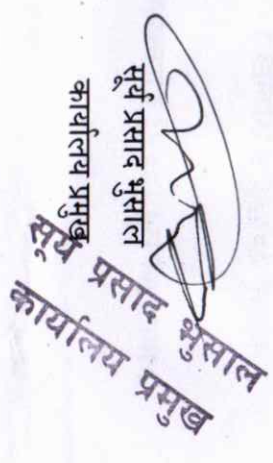 सूर्य प्रसाद भुसाल
कार्यालय प्रमुख
सूर्य प्रसाद भुसाल
कार्यालय प्रमुख